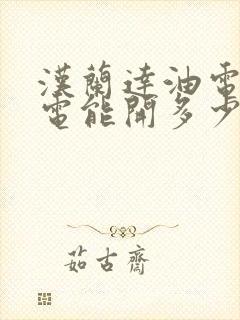 漢蘭達油電
電能開多少
茹古齋